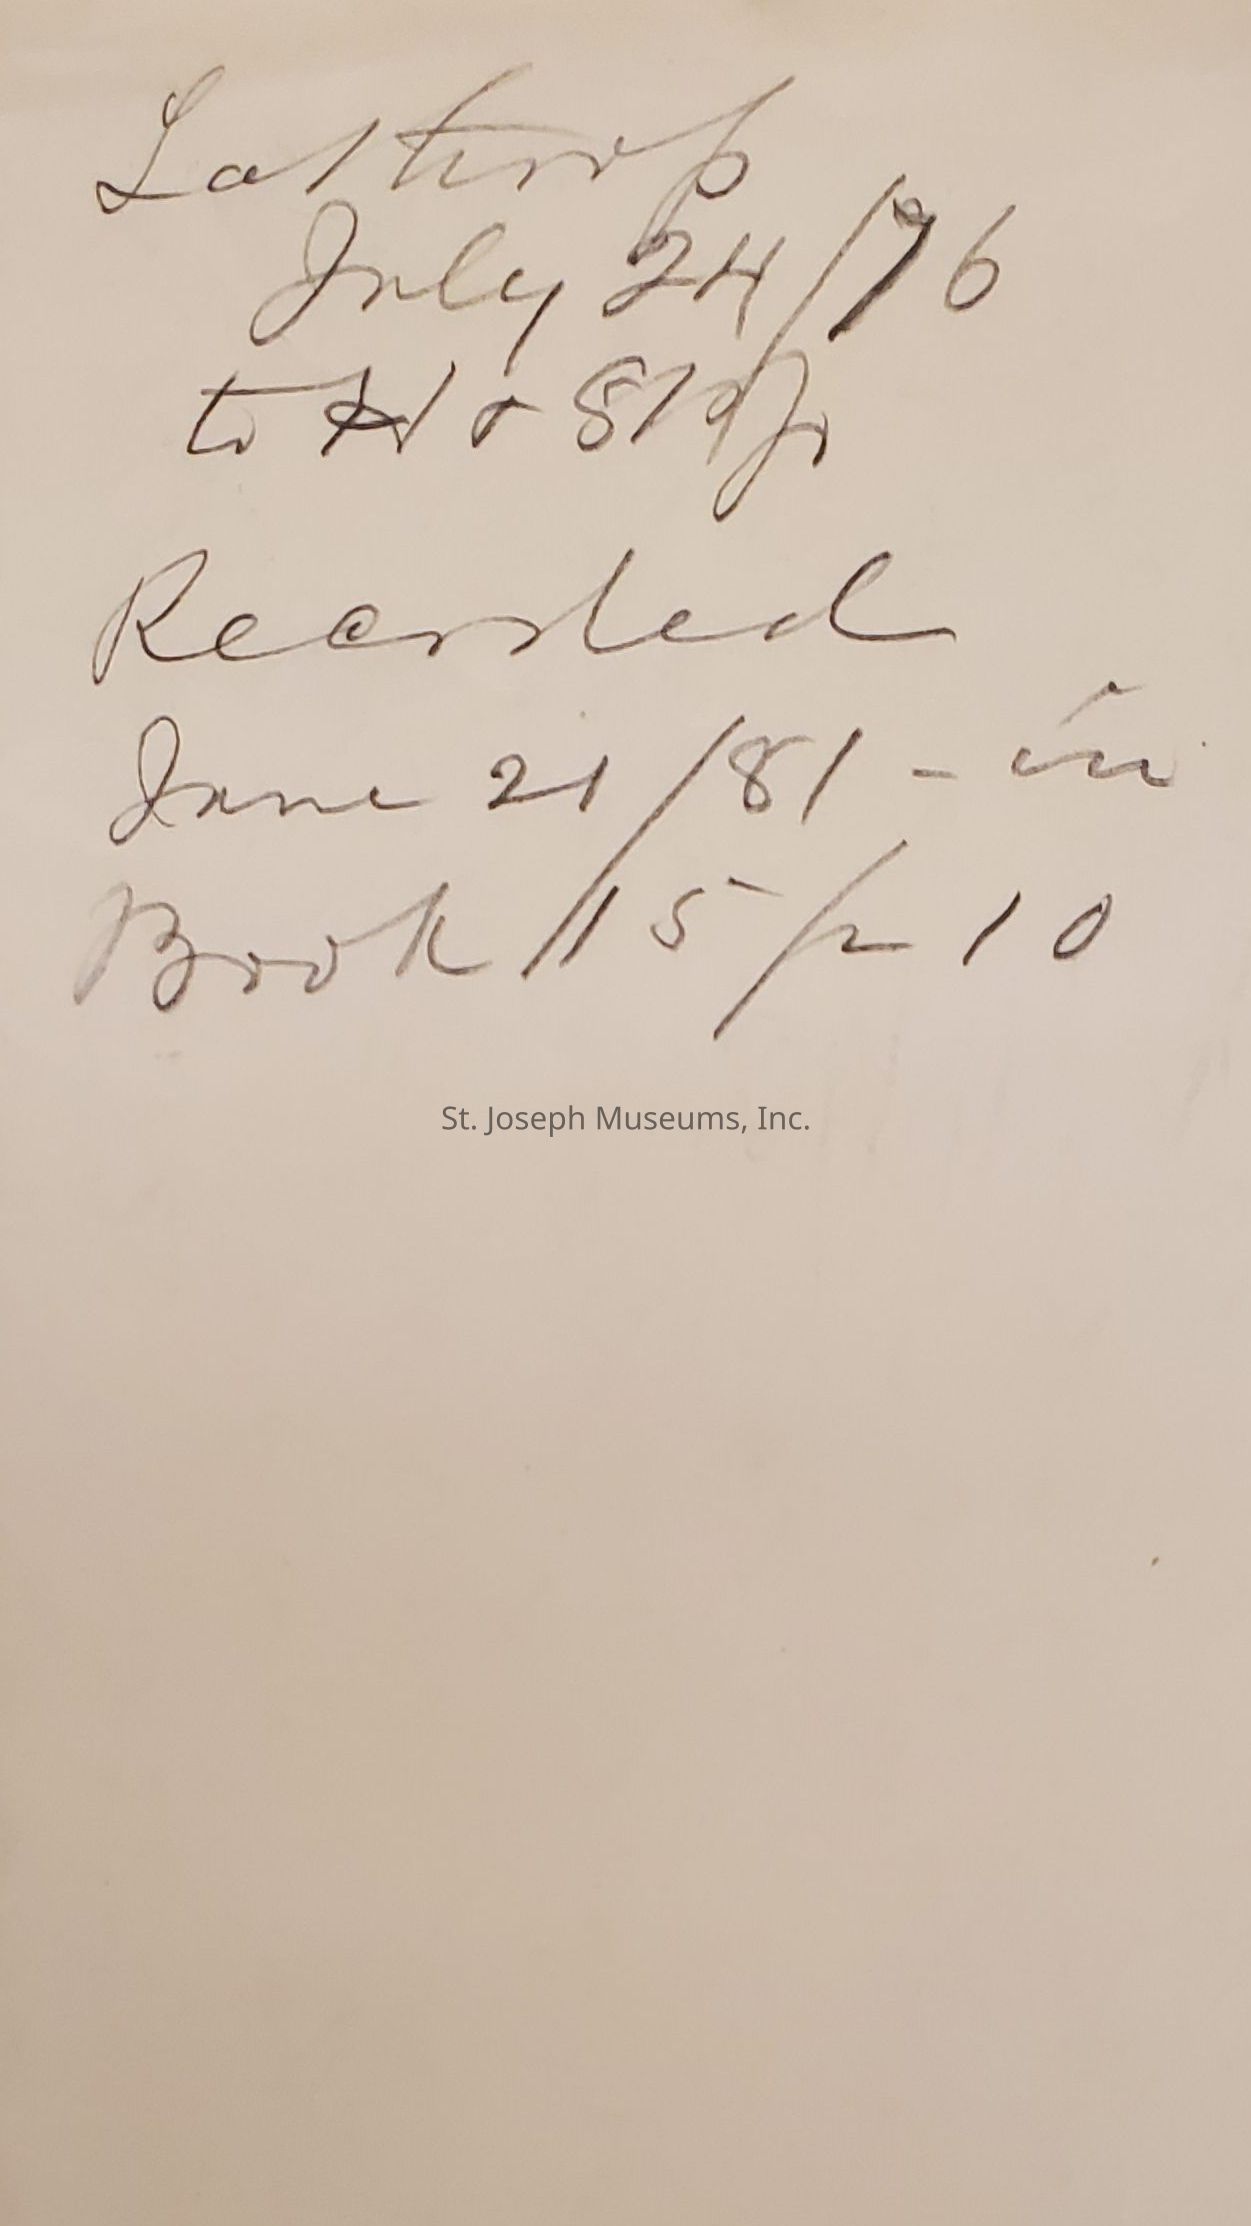 Lathrop
July 24/76
to H & St Jo
Recorded
June 21/81 - in
Book 115 p 10
St. Joseph Museums, Inc.